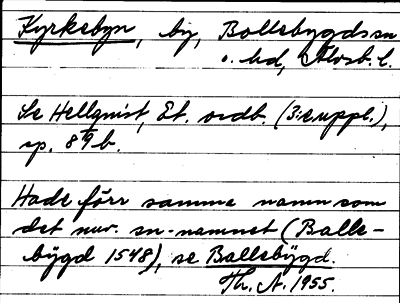 Kyrkebyn, by, Bollebygds sn
o. hd, Älvsb. l.
Se Hellquist, Et. ordb. (3:e uppl.),
sp. 8 b.
Hade förr samma namn som
det nuv. sn-namnet (Balle-
bygd 1548), se Bollebygd.
Th. A. 1955.